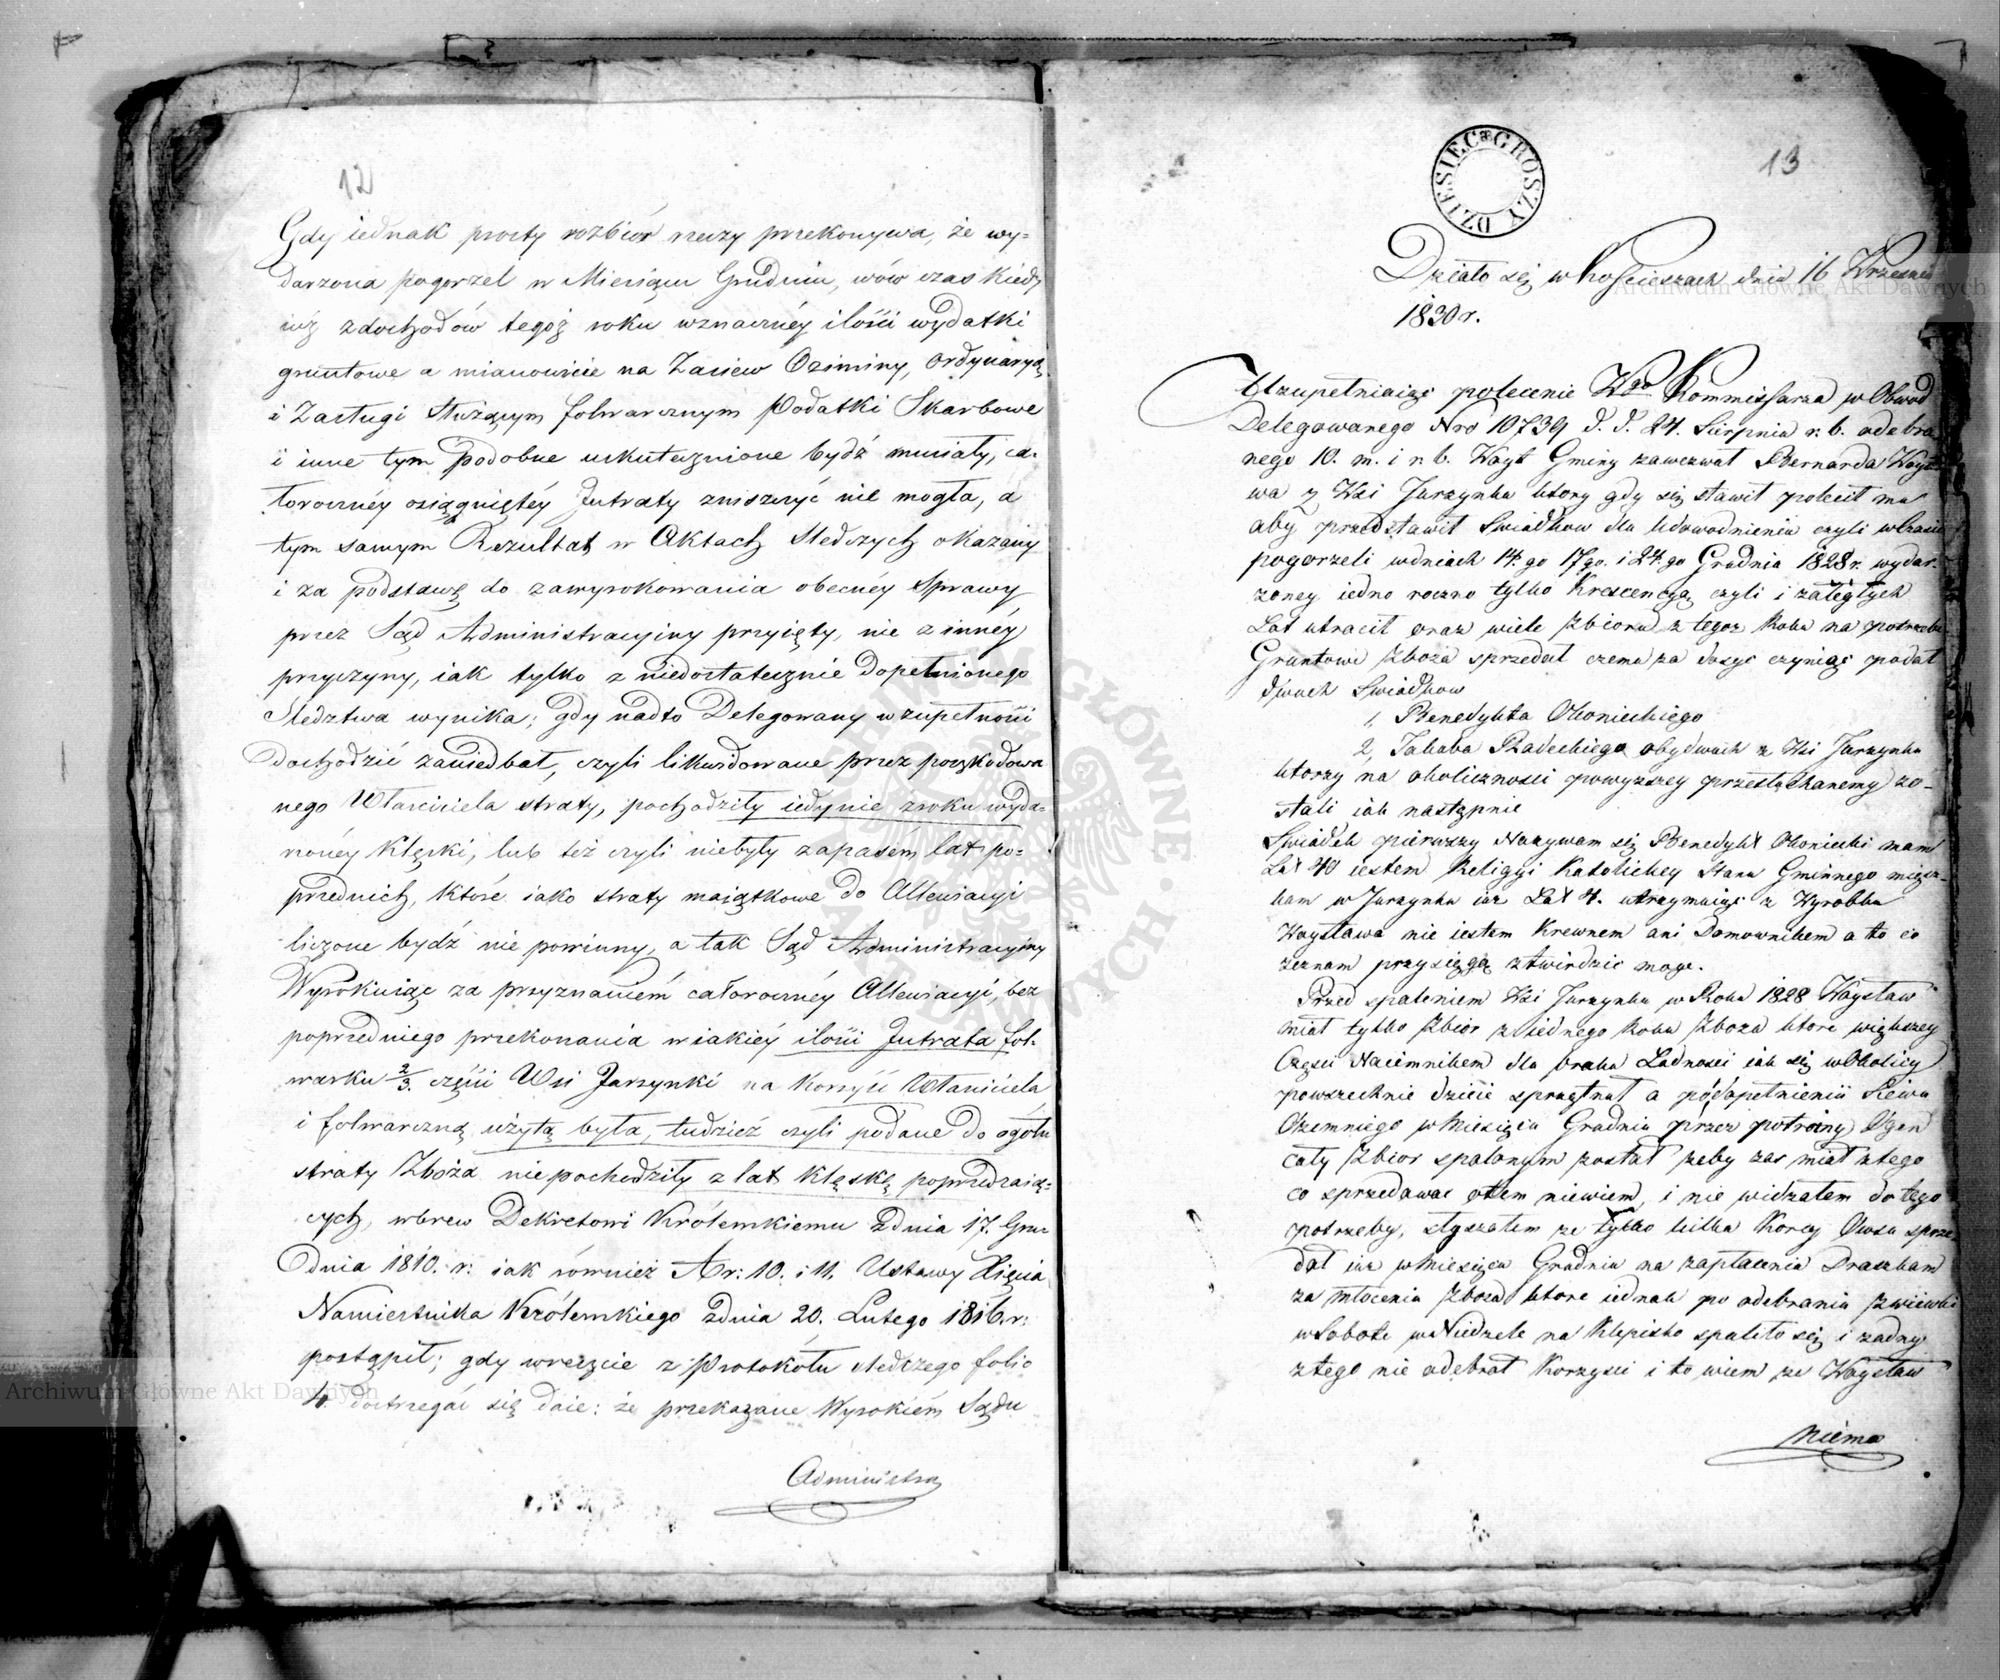 12
Gdy iednak prosty rozbiór rzeczy przekonywa, że wy=
darzona pogorzel w Miesiącu Grudniu, wów czas kiedy
iuż z dochodów tegoż roku wznaczney ilości wydatki
gruntowe a mianowicie na Zasiew Oziminy, Ordynaryą
i Zasługi służącym folwarcznym Podatki Skarbowe
i inne tym podobne uskutecznione bydź musiały, ca=
łoroczney osiągniętey Jntraty zniszczyć nie mogła, a
tym samym Rezultat w Aktach śledczych okazany
i za podstawę do zawyrokowania obecney Sprawy
przez Sąd Administracyiny przyięty, nie z inney
przyczyny, iak tylko z niedostatecznie dopełnionego
śledztwa wynika; gdy nadto Delegowany w zupełności
dochodzić zaniedbał, czyli likwidowane przez poszkodowa
nego Właściciela straty, pochodziły iedynie z roku wyda=
rzoney klęski, lub też czyli niebyły zapasem lat po=
przednich, które iako straty maiątkowe do Allewiacyi
liczone bydź nie powinny, a tak Sąd Administracyiny
Wyrokuiąc za przyznaniem całoroczney Allewiacyi, bez
poprzedniego przekonania w iakiey ilości Jntrata fol=
warku 2/3. części Wsi Jarzynki na korzyść Właściciela
i folwarczną użytą była, tudzież czyli podane do ogółu
straty Zboża niepochodziły z lat klęskę poprzedzaią=
cych, wbrew Dekretowi Królewskiemu z dnia 17. Gru=
dnia 1810. r: iak również Ar: 10. i 11. Ustawy Xięcia
Namiestnika Królewskiego z dnia 20. Lutego 1816. r:
postąpił; gdy wreszcie z Protokołu śledczego folio
4 dostrzegać się daie: że przekazane Wyrokiem Sądu
Administra
13
DZIESIĘC GROSZY
Działo się w Kościeszach dnia 16 Wrzesnia
1830 r.
Uzupełniaiąc polecenie Wgo Kommissarza w Obwod
Delegowanego Nro 10739 d. d. 24. Sierpnia r. b. odebra
nego 10. m. i r. b. Woyt Gminy zawezwał Bernarda Woys
wa z Wsi Jarzynka ktory gdy się stawił polecił mu
aby przedstawił Swiadkow dla udowodnienia czyli w czasie
pogorzeli w dniach 14. go 17 go. i 24. go Grudnia 1828 r. wydar=
zoney iedno roczno tylko Krescencyą czyli i zaległych
Lat utracił oraz wiele Zbioru z tegoz Roku na potrzebe
Gruntowe Zboza sprzedał czemu za dosyc czyniąc podał
dwuch Swiadkow
1, Benedykta Okonieckiego
2, Jakuba Radeckiego obydwuch z Wsi Jarzynka
ktorzy na okolicznosci powyzszey przesłuchanemy zo=
stali iak następnie
Swiadek pierwszy Nazywam się Benedykt Okoniecki mam
Lat 40 iestem Religyi Katolickey Stanu Gminnego miesz=
kam w Jarzynku iuz Lat 4. utrzymuiąc z Wyrobku
Woysława nie iestem Krewnem ani Domownikem a to co
zeznam przysięgą ztwirdzic moge.
Przed spaleniem Wsi Jarzynku w Roku 1828 Woysław
miał tylko Zbior z iednego Roku Zboza ktore większey
Części Naiemnikem dla braku Ludnosci iak się w Okolicy
powszechnie dzieie sprzątnał a po dopełnieniu Siewu
Ozemniego w Miesiącu Grudniu przez potroiny Ogen
cały Zbior spalonym został zeby zas miał z tego
co sprzedawac otem niewiem, i nie widzałem do tego
potrzeby, słyszałem ze tylko kilka Korcy Owsa sprze
dał iuz w Miesiącu Grudniu na zapłacenia Draszkam
za młocenia Zboza ktore iednak po odebraniu
w Sobote w Niedzele na Klepisko spaliło się i zadny
z tego nie odebrał Korzysci i to wiem ze Woysław
niema
Archiwum Główne Akt Dawnych
Archiwum Główne Akt Dawnych
ARCHIWUM GŁÓWNE AKT DAWNYCH